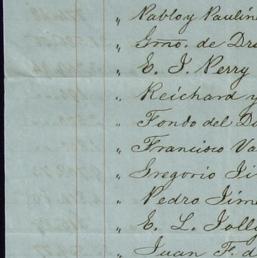 „ Pablo y Paulin
„ Gmo. de Dr
„ E. J. Perry
„ Reichard y
„ Fondo del D
„ Francisco Va
„ Gregorio Ji
„ Pedro Jime
„ E. L. Jolly
„ Juan F. d